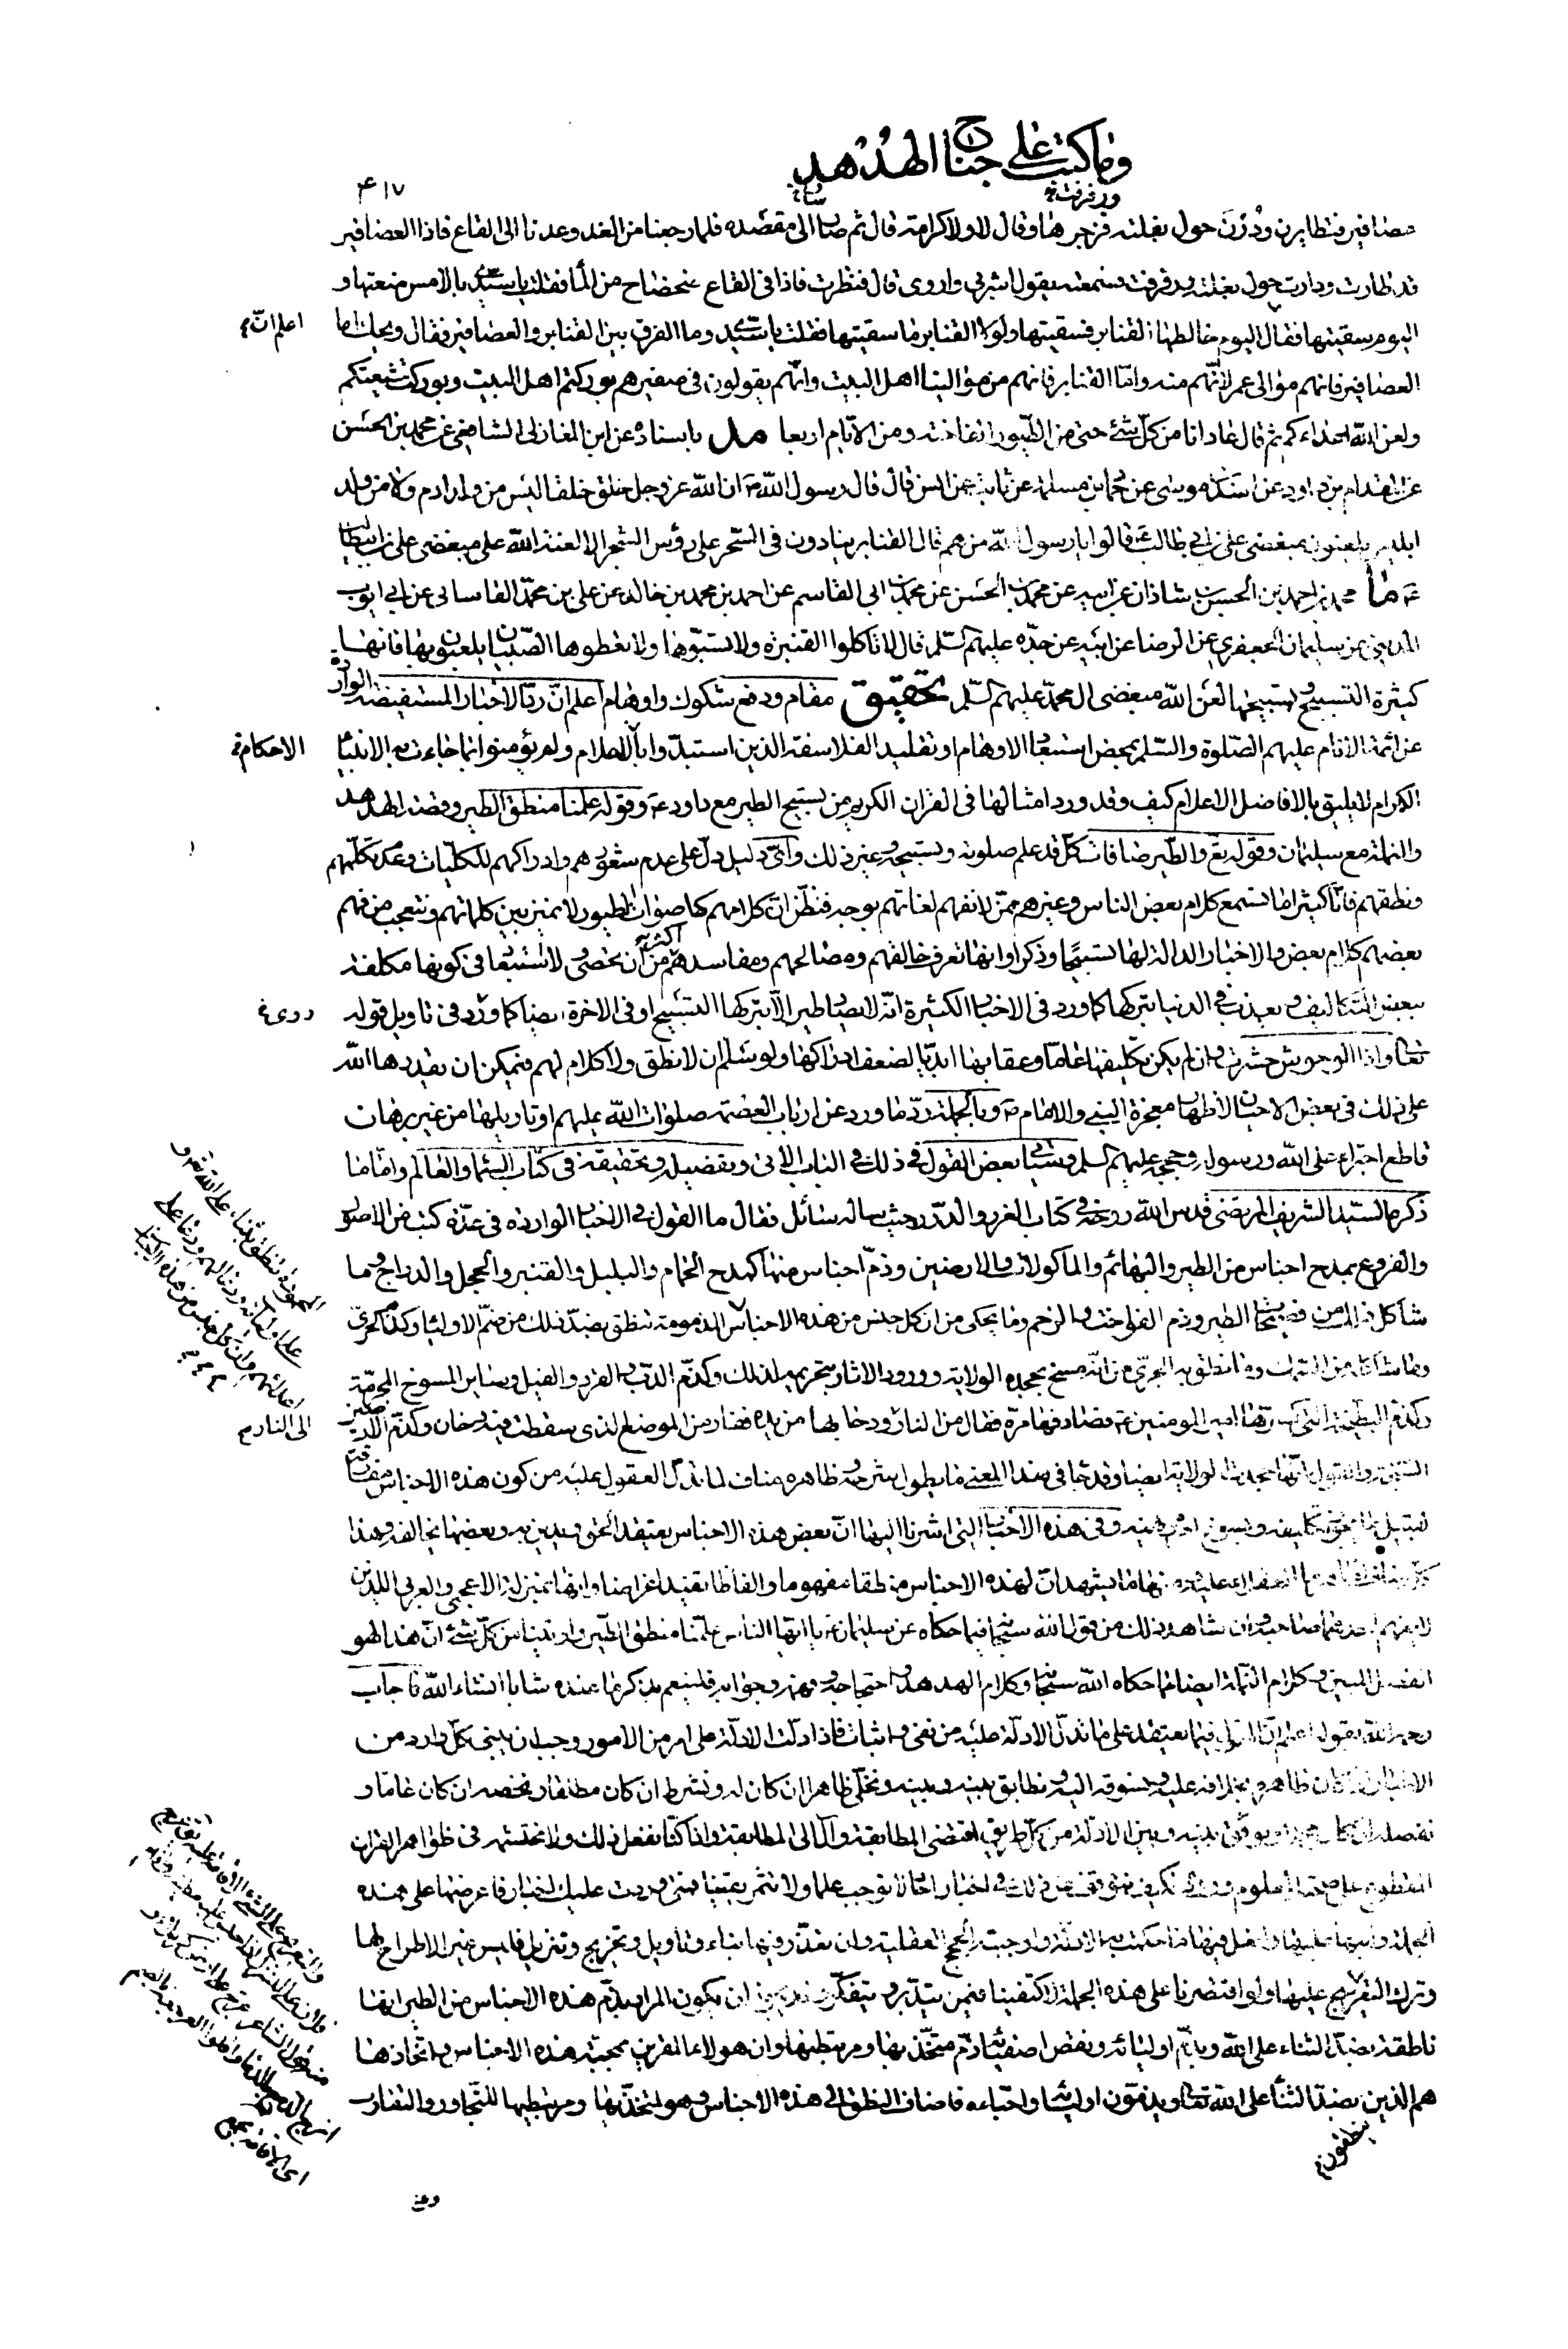 وما كتب على جناح الهدهد
٤١٧
ورفرفت
عصافير فتطايرن ودُرْنَ حول بغلته فزجرها وقال لا ولا كرامة قال ثم صار الى مقصده فلما رجعنا من الغد وعدنا الى القاع فاذا العصافير
قد طارت ودارت حول بغلته ورفرفت فسمعته يقول اشربي واروى قال فنظرت فاذا في القاع ضحضاح من الماء فقلت يا سيدي بالامس منعتها و
اليوم سقيتها فقال اليوم خالطها القنابر فسقيتها ولولا القنابر ما سقيتها فقلت يا سيدي وما الفرق بين القنابر والعصافير فقال ويحك اما
اعلم ان
العصافير فانهم موالى عمر لانهم منه واما القنابر فانهم من موالينا اهل البيت وانهم يقولون في صفيرهم بوركتم اهل البيت وبوركت شيعتكم
ولعن الله اعداءكم ثم قال عادانا من كل شئ حتى من الطيور الفاختة ومن الايام اربعا مد باسناده عن ابن المغازلي الشافعي عن محمد بن الحسن
عن موسى عن حماد بن مسلمة عن ثابت عن انس قال قال رسول الله ص ان الله عز وجل خلق خلقا ليس من ولد ادم ولا من ولد
ابليس يلعنون مبغضى على بن ابي طالب ع قالوا يا رسول الله من هم قال القنابر ينادون في السحر على رؤس الشجر الا لعنة الله على مبغضى على بن ابيطالب
ع ما محمد بن احمد بن الحسن بن شاذان عن ابيه عن محمد بن الحسن عن محمد بن ابي القاسم عن احمد بن محمد بن خالد عن على بن محمد القاساني عن ابي ايوب
المديني عن سليمان الجعفري عن الرضا عن ابيه عن جده عليهم السلم قال لا تاكلوا القنبرة ولا تسبوها ولا تعطوها الصبيان يلعبون بها فانها
كثيرة التسبيح وتسبيحها لعن الله مبغضى ال محمد عليهم السلم تحقيق مقام ودفع شكوك واوهام اعلم ان رد الاخبار المستفيضة الواردة
عن ائمة الانام عليهم الصلوة والسلم بمحض استبعاد الاوهام او تقليد الفلاسفة الذين استبدوا بالاحلام ولم يؤمنوا بما جاءت به الانبياء
الاحكام
الكرام لا يليق بالافاضل الاعلام كيف وقد ورد امثالها في القران الكريم من تسبيح الطير مع داود ع وقوله علمنا منطق الطير وقصة الهدهد
والنملة مع سليمان وقوله تع والطير صافات كل قد علم صلوته وتسبيحه وغير ذلك واى دليل دل على عدم شعورهم وادراكهم للكليات وعدم تكلمهم
ونطقهم فانا كثيرا ما نستمع كلام بعض الناس وغيرهم ممن لا نفهم لغاتهم بوجه فنظن ان كلامهم كاصوات الطيور لا نميز بين كلماتهم ونتعجب من فهم
اكثر
بعضهم كلام بعض والاخبار الدالة لها تسبيحا وذكرا وانها تعرف خالقهم ومصالحهم ومفاسدهم من ان تحصى ولا استبعاد في كونها مكلفة
ببعض التكاليف وتعذب في الدنيا بتركها كما ورد في الاخبار الكثيرة انه لا يصاد طير الا بتركها التسبيح او في الاخرة ايضا كما ورد في تاويل قوله
روى
تعالى واذا الوحوش حشرت وان لم يكن تكليفها عاما وعقابها ابديا لضعف ادراكها ولو سلم ان لا نطق ولا كلام لهم فيمكن ان يقدرها الله
على ذلك في بعض الاحيان لاظهار معجزة النبي والامام ص وبالجملة رد ما ورد عن ارباب العصمة صلوات الله عليهم او تاويلها من غير برهان
قاطع اجتراء على الله ورسوله وحججه عليهم السلم وسياتي بعض القول في ذلك في الباب الاتى وتفصيله وتحقيقه في كتاب السماء والعالم واما ما
ذكره السيد الشريف المرتضى قدس الله روحه في كتاب الغرر والدرر حيث ساله سائل فقال ما القول في الاخبار الواردة في عدة كتب من الاصول
والفروع بمدح اجناس من الطير والبهائم والماكولات والارضين وذم اجناس منها كمدح الحمام والبلبل والقنبر والحجل والدراج وما
شاكل ذلك من فصيحات الطير وذم الفواخت والرخم وما يحكى من ان كل جنس من هذه الاجناس المذمومة تنطق بضد ذلك من ذم الاولياء وكذم الجري
وما شاكله من السمك وما نطق به الجري من انه مسخ بجحده الولاية وورود الاثار بتحريمه لذلك وكذم الدب والقرد والفيل وسائر المسوخ المحرمة
وكذم البطيخة التي كسرها امير المومنين ع فصادفها مرة فقال من النار ودحا بها من يده ففار من الموضع الذي سقطت فيه دخان وكذم الارضين
الى النار
السبخة والقول بانها جحدت الولاية ايضا وقد جاء في هذا المعنى ما يطول شرحه وظاهره مناف لما تدل العقول عليه من كون هذه الاجناس مفارقة
لقبيل ما يجوز تكليفه ويسوغ امره ونهيه وفي هذه الاخبار التي اشرنا اليها ان بعض هذه الاجناس يعتقد الحق ويدين به وبعضها يخالفه وهذا
كله مناف لظاهر ما العقلاء عليه ومنها ما يشهد ان لهذه الاجناس منطقا مفهوما والفاظا تفيد اغراضا وانها بمنزلة الاعجمي والعربي اللذين
لا يفهم احدهما صاحبه وان شاهد ذلك من قول الله سبحانه فيما حكاه عن سليمان ع يا ايها الناس علمنا منطق الطير واوتينا من كل شئ ان هذا لهو
الفضل المبين وكلام النملة ايضا مما حكاه الله سبحانه وكلام الهدهد واحتجاجه وفهمه وجوابه فلينعم بذكر ما عنده مثابا انشاء الله فاجاب
رحمه الله بقوله اعلم ان المعول فيما يعتقد على ما تدل الادلة عليه من نفي واثبات فاذا دلت الادلة على امر من الامور وجب ان يبنى كل وارد من
الاخبار اذا كان ظاهره بخلافه عليه ونسوقه اليه ونطابق بينه وبينه ونخلي ظاهرا ان كان له ونشرط ان كان مطلقا ونخصه ان كان عاما و
نفصله ان كان مجملا ونوفق بينه وبين الادلة من كل طريق اقتضى المطابقة وآل الى المطابقة واذا كنا نفعل ذلك ولا نحتشمه في ظواهر القران
المقطوع على صحته المعلوم وروده فكيف نتوقف عن ذلك في اخبار احاد لا توجب علما ولا تثمر يقينا فمتى وردت عليك اخبار فاعرضها على هذه
الجملة وابنها عليها وافعل فيها ما حكمت به الادلة واوجبته الحجج العقلية وان تعذر فيها بناء وتاويل وتخريج وتنزيل فليس غير الاطراح لها
وترك التعريج عليها ولو اقتصرنا على هذه الجملة لاكتفينا فيمن يتدبر ويتفكر وقد يجوز ان يكون المراد بذم هذه الاجناس من الطير انها
ناطقة بضد الثناء على الله وبذم اوليائه ونقص اصفيائه ذم متخذيها ومرتبطيها وان هولاء المغرين بمحبة هذه الاجناس واتخاذها
هم الذين بضد الثناء على الله تعالى ويذمون اوليائه واحباءه فاضاف النطق الى هذه الاجناس وهو لمتخذيها ومرتبطيها للتجاور والتقارب
ينطقون